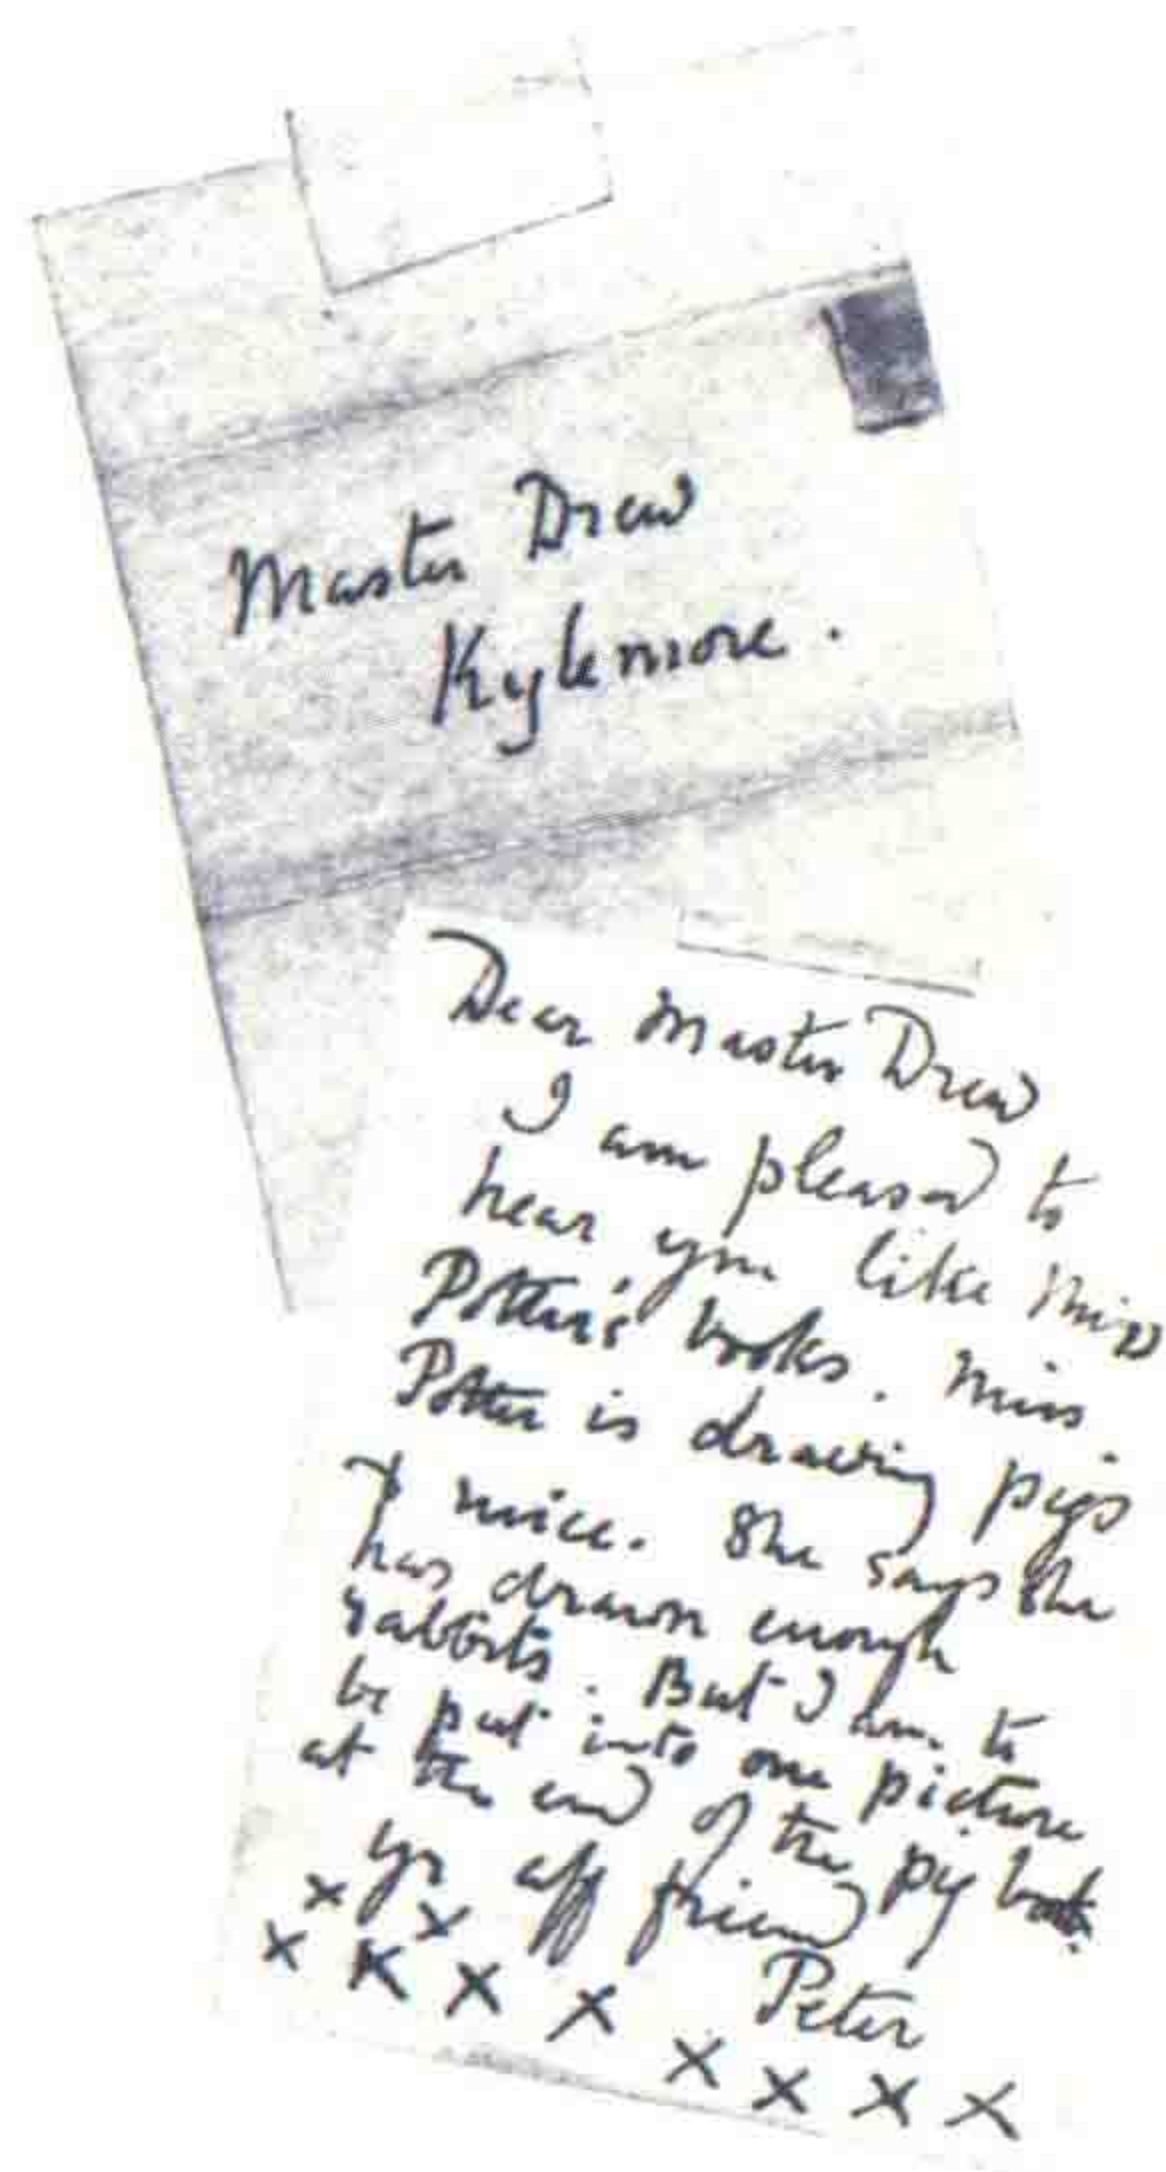 Master Drew
Kylemore.
Dear Master Drew
I am pleased to
hear you like Miss
Potter's books. Miss
Potter is drawing pigs
& mice. She says she
has drawn enough
rabbits. But I am to
be put into one picture
at the end of the pig book.
yr aff friend
Peter
x x
x x x x x x x x